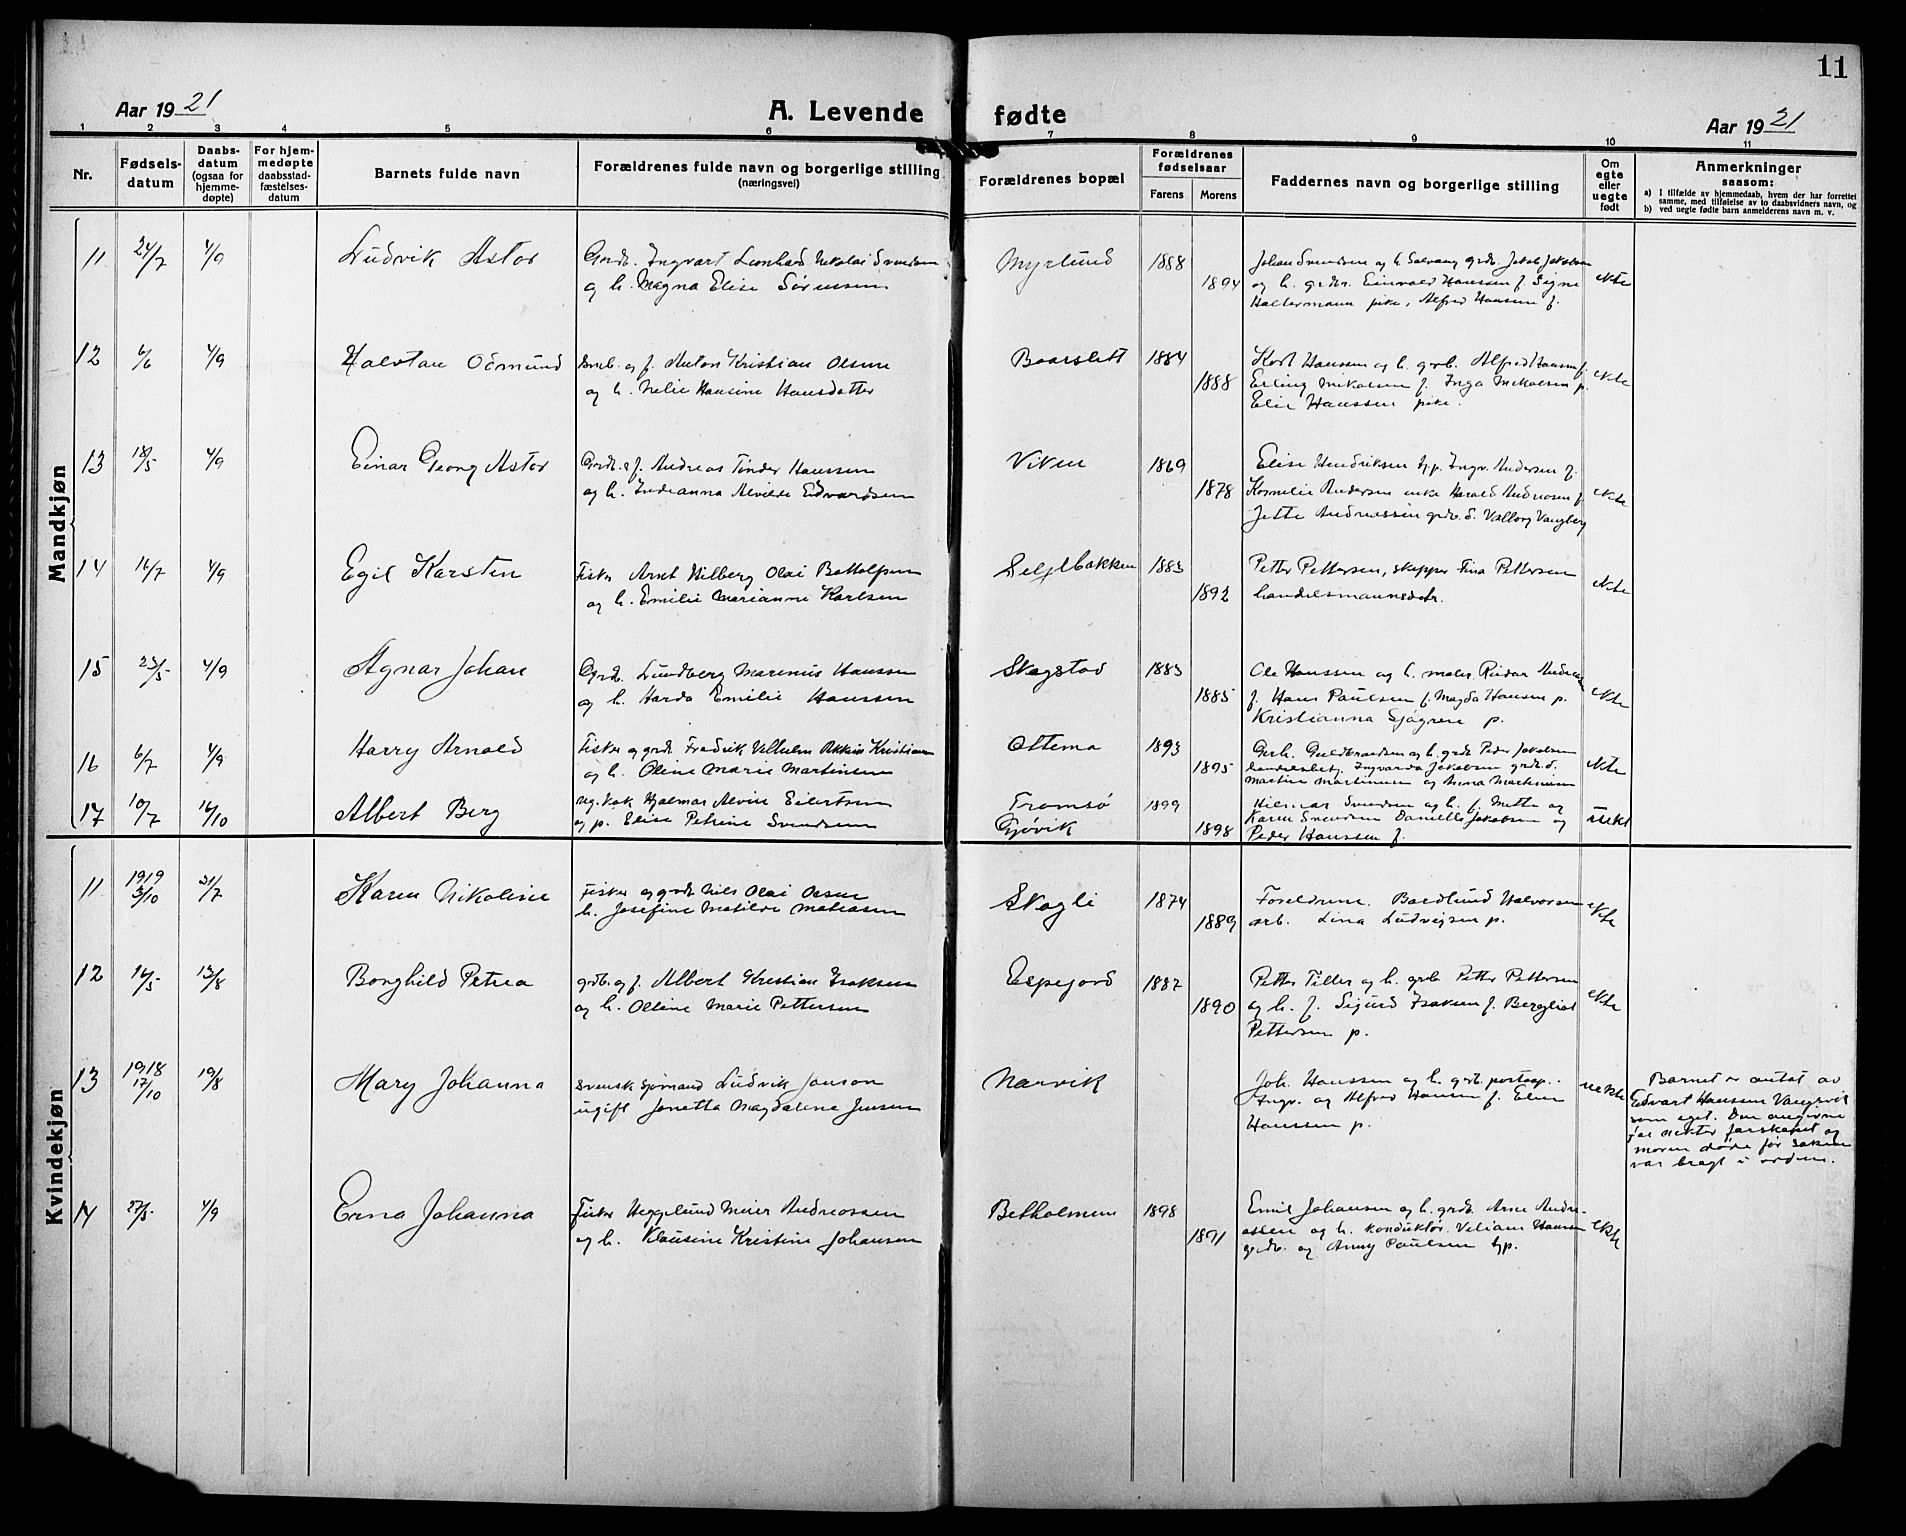 11
Aar 1921
A. Levende fødte
Aar 1921
1 2 3 4 5 6 7 8 9 10 11
Nr.
Fødsels-
datum
Daabs-
datum
(ogsaa for
hjemme-
døpte)
For hjem-
medøpte
daabsstad-
fæstelses-
datum
Barnets fulde navn
Forældrenes fulde navn og borgerlige stilling
(næringsvei)
Forældrenes bopæl
Forældrenes
fødselsaar
Farens Morens
Faddernes navn og borgerlige stilling
Om
egte
eller
uegte
født
Anmerkninger
saasom:
a) I tilfælde av hjemmedaab, hvem der har forrettet
samme, med tilføielse av to daabsvidners navn, og
b) ved uegte fødte barn anmelderens navn m. v.
Mandkjøn
11 24/7 4/9 Ludvik Astor
Grdb. Ingvart Leonhard Nikolai Svendsen
og h. Magna Elise Sørensen
Myrlund 1888 1894
Johan Svendsen og h Solvang grdb. Jakob Jakobsen
og h. grdbr. Einvald Hanssen f. Signe
Haltermann pike, Alfred Hansen f.
ekte
12 6/6 4/9 Halvtan Odmund
Smb. og f. Anton Kristian Olsen
og h. Nelie Hansine Hansdatter
Baarslett 1884 1888
Kort Hanssen og h. grb. Alfred Hansen f.
Erling Mikalsen f. Inga Mikalsen p.
Elie Hanssen pike.
ekte
13 18/5 4/9 Einar Georg Astor
Grdb. & f. Andreas Tønder Hanssen
og h. Indianna Alvilde Edvardsen
Viken 1869 1878
Elise Hendriksen tjp. Ingv. Andersen f.
Kornelie Andersen enke Harald Andreasen f.
Jette Andreassen grdb. d. Valborg Vangberg
ekte
14 16/7 4/9 Egil Karsten
Fisker Arnt Hilberg Olai Bottolfsen
og h. Emilie Marianne Karlsen
Seljebakken 1883 1892
Petter Pettersen, skipper Fina Pettersen
handelsmannsdtr.
ekte
15 23/5 4/9 Agnar Johan
Grdb. Lundberg Marenius Hanssen
og h. Harda Emilie Hanssen
Skogstad 1883 1885
Ole Hanssen og h. maler Reidar Andreas
f. Hans Paulsen f. Magda Hansen p.
Kristianna Sjøgren p.
ekte
16 6/7 4/9 Harry Arnold
Fisker og grdb. Fredrik Vilhelm Kristiansen
og h. Oline Marie Martinsen
Ottema 1893 1895
Gerh. Guldbrandsen og h. grdb. Peder Jakobsen
handelsbetj. Ingvarda Jakobsen grdb. d.
Martin Martinsen og Anna Martinsen
ekte
17 10/7 16/10 Albert Berg
ug. kok Hjalmar Alvin Eilertsen
og p. Elise Petrine Svendsen
Tromsø
Gjøvik
1899 1898
Hilmar Svendsen og h. f. Mette og
Karen Svendsen Danielle Jakobsen og
Peder Hanssen f.
uekt
Kvindekjøn
11 1919 3/10 31/7 Karen Nikoline
Fisker og grdb. Nils Olai Olsen
h. Josefine Matilde Mathiasen
Skogli 1874 1889
Foreldrene. Bardlund Halvorsen
arb. Lina Ludvigsen p.
ekte
12 16/5 13/8 Borghild Petrea
grdb. og f. Albert Kristian Isaksen
og h. Olline Marie Pettersen
Espejord 1887 1890
Petter Tiller og h. grb. Petter Pettersen
og h. f. Sigurd Isaksen f. Bergliot
Pettersen p.
ekte
13 1918 17/10 19/8 Mary Johanna
svensk sjømand Ludvik Janson
ugift Jonetta Magdalene Jensen
Narvik
Joh. Hanssen og h. grb. postaap.
Ingv. og Alfred Hansen f. Elien
Hanssen p.
uekte
Barnet er antat av
Edvart Hanssen Vangsvik
som eget. Den angivne
far nekter farskapet og
moren døde før saken
var bragt i orden.
14 27/5 4/9 Erna Johanna
Fisker Heggelund Meier Andreassen
og h. Klausine Kristine Johansen
Betholmen 1898 1891
Emil Johansen og h. grdb. Arne Andre-
assen og h. konduktør. Veliam Hansen
grdb. og Anny Paulsen tjp.
ekte